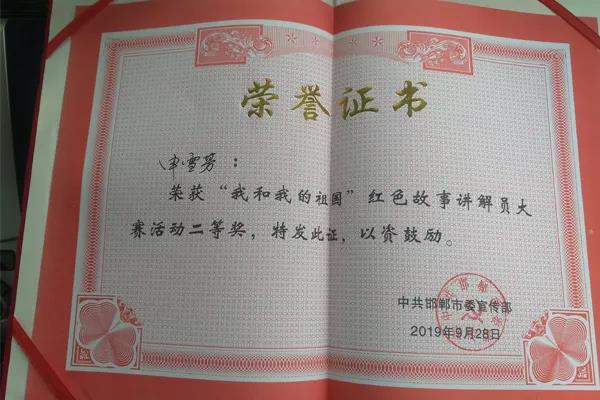 荣誉证书
申雪芳：
荣获“我和我的祖国”红色故事讲解员大
赛活动二等奖，特发此证，以资鼓励。
中共邯郸市委宣传部
2019年9月28日